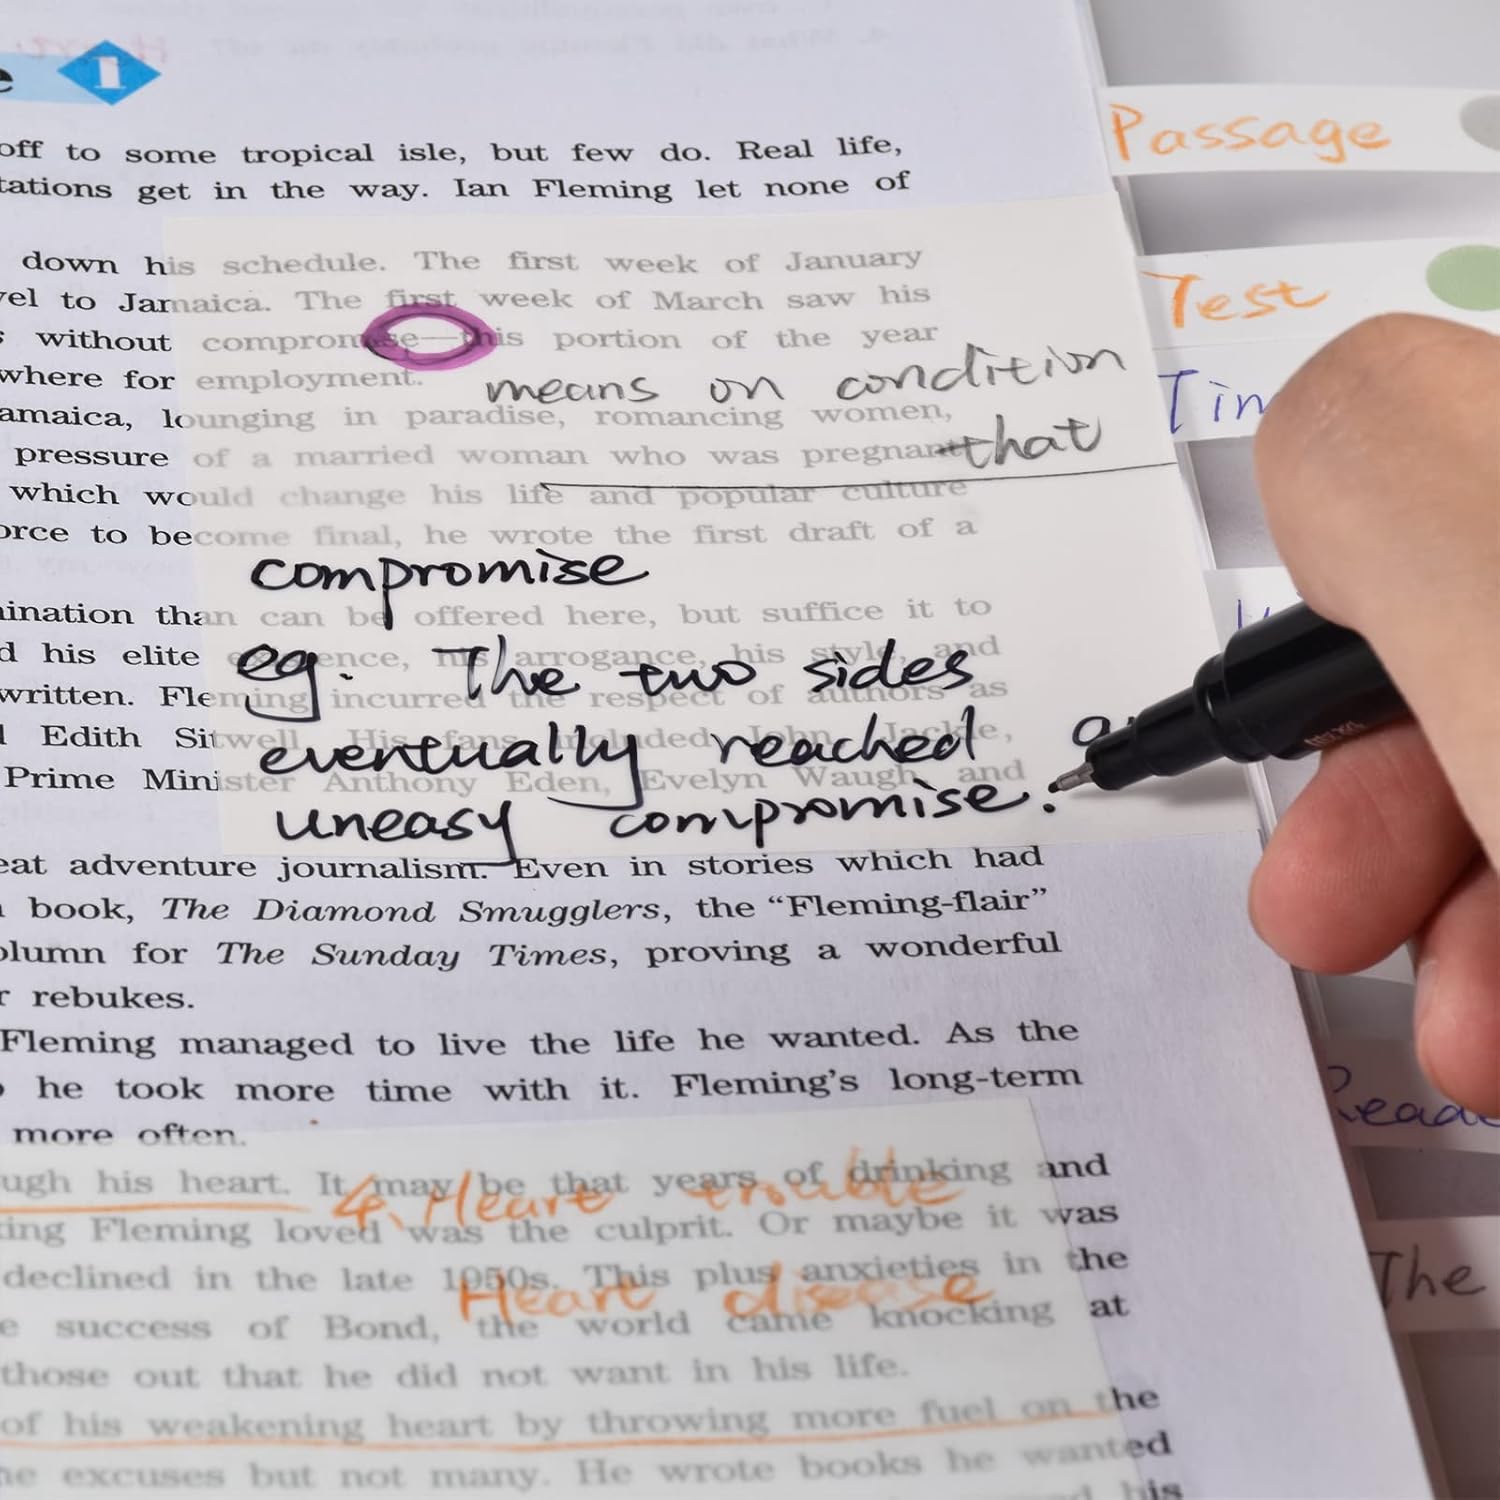 1
off to some tropical isle, but few do. Real life,
tations get in the way. Ian Fleming let none of
down his schedule. The first week of January
vel to Jamaica. The first week of March saw his
without compromise—this portion of the year
where for employment.
means on condition
amaica, lounging in paradise, romancing women,
that
pressure of a married woman who was pregnant
which would change his life and popular culture
orce to become final, he wrote the first draft of a
compromise
ination than can be offered here, but suffice it to
eg. The two sides
d his elite his arrogance, his style, and
written. Fleming incurred the respect of authors as
eventually reached a
Edith Sitwell. His fans included John Jackie,
Prime Minister Anthony Eden, Evelyn Waugh, and
uneasy compromise.
eat adventure journalism. Even in stories which had
book, The Diamond Smugglers, the “Fleming-flair”
olumn for The Sunday Times, proving a wonderful
r rebukes.
Fleming managed to live the life he wanted. As the
he took more time with it. Fleming’s long-term
more often.
ugh his heart. It may be that years of drinking and
4. Heart trouble
ing Fleming loved was the culprit. Or maybe it was
declined in the late 1950s. This plus anxieties in the
Heart disease
e success of Bond, the world came knocking at
those out that he did not want in his life.
of his weakening heart by throwing more fuel on the
he excuses but not many. He wrote books he wanted
his
Passage
Test
Tim
Read
The